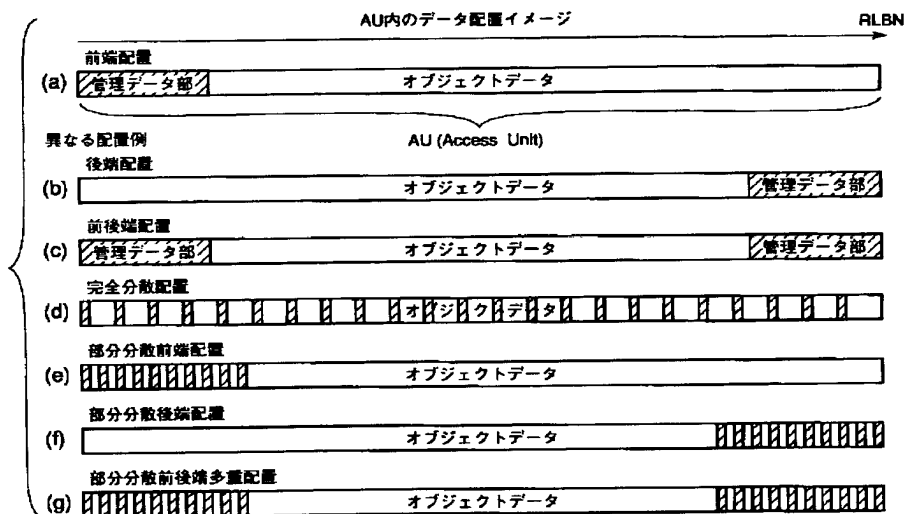 AU内のデータ配置イメージ
RLBN
前端配置
(a) 管理データ部 オブジェクトデータ
異なる配置例 AU (Access Unit)
後端配置
(b) オブジェクトデータ 管理データ部
前後端配置
(c) 管理データ部 オブジェクトデータ 管理データ部
完全分散配置
(d) オブジェクトデータ
部分分散前端配置
(e) オブジェクトデータ
部分分散後端配置
(f) オブジェクトデータ
部分分散前後端多重配置
(g) オブジェクトデータ